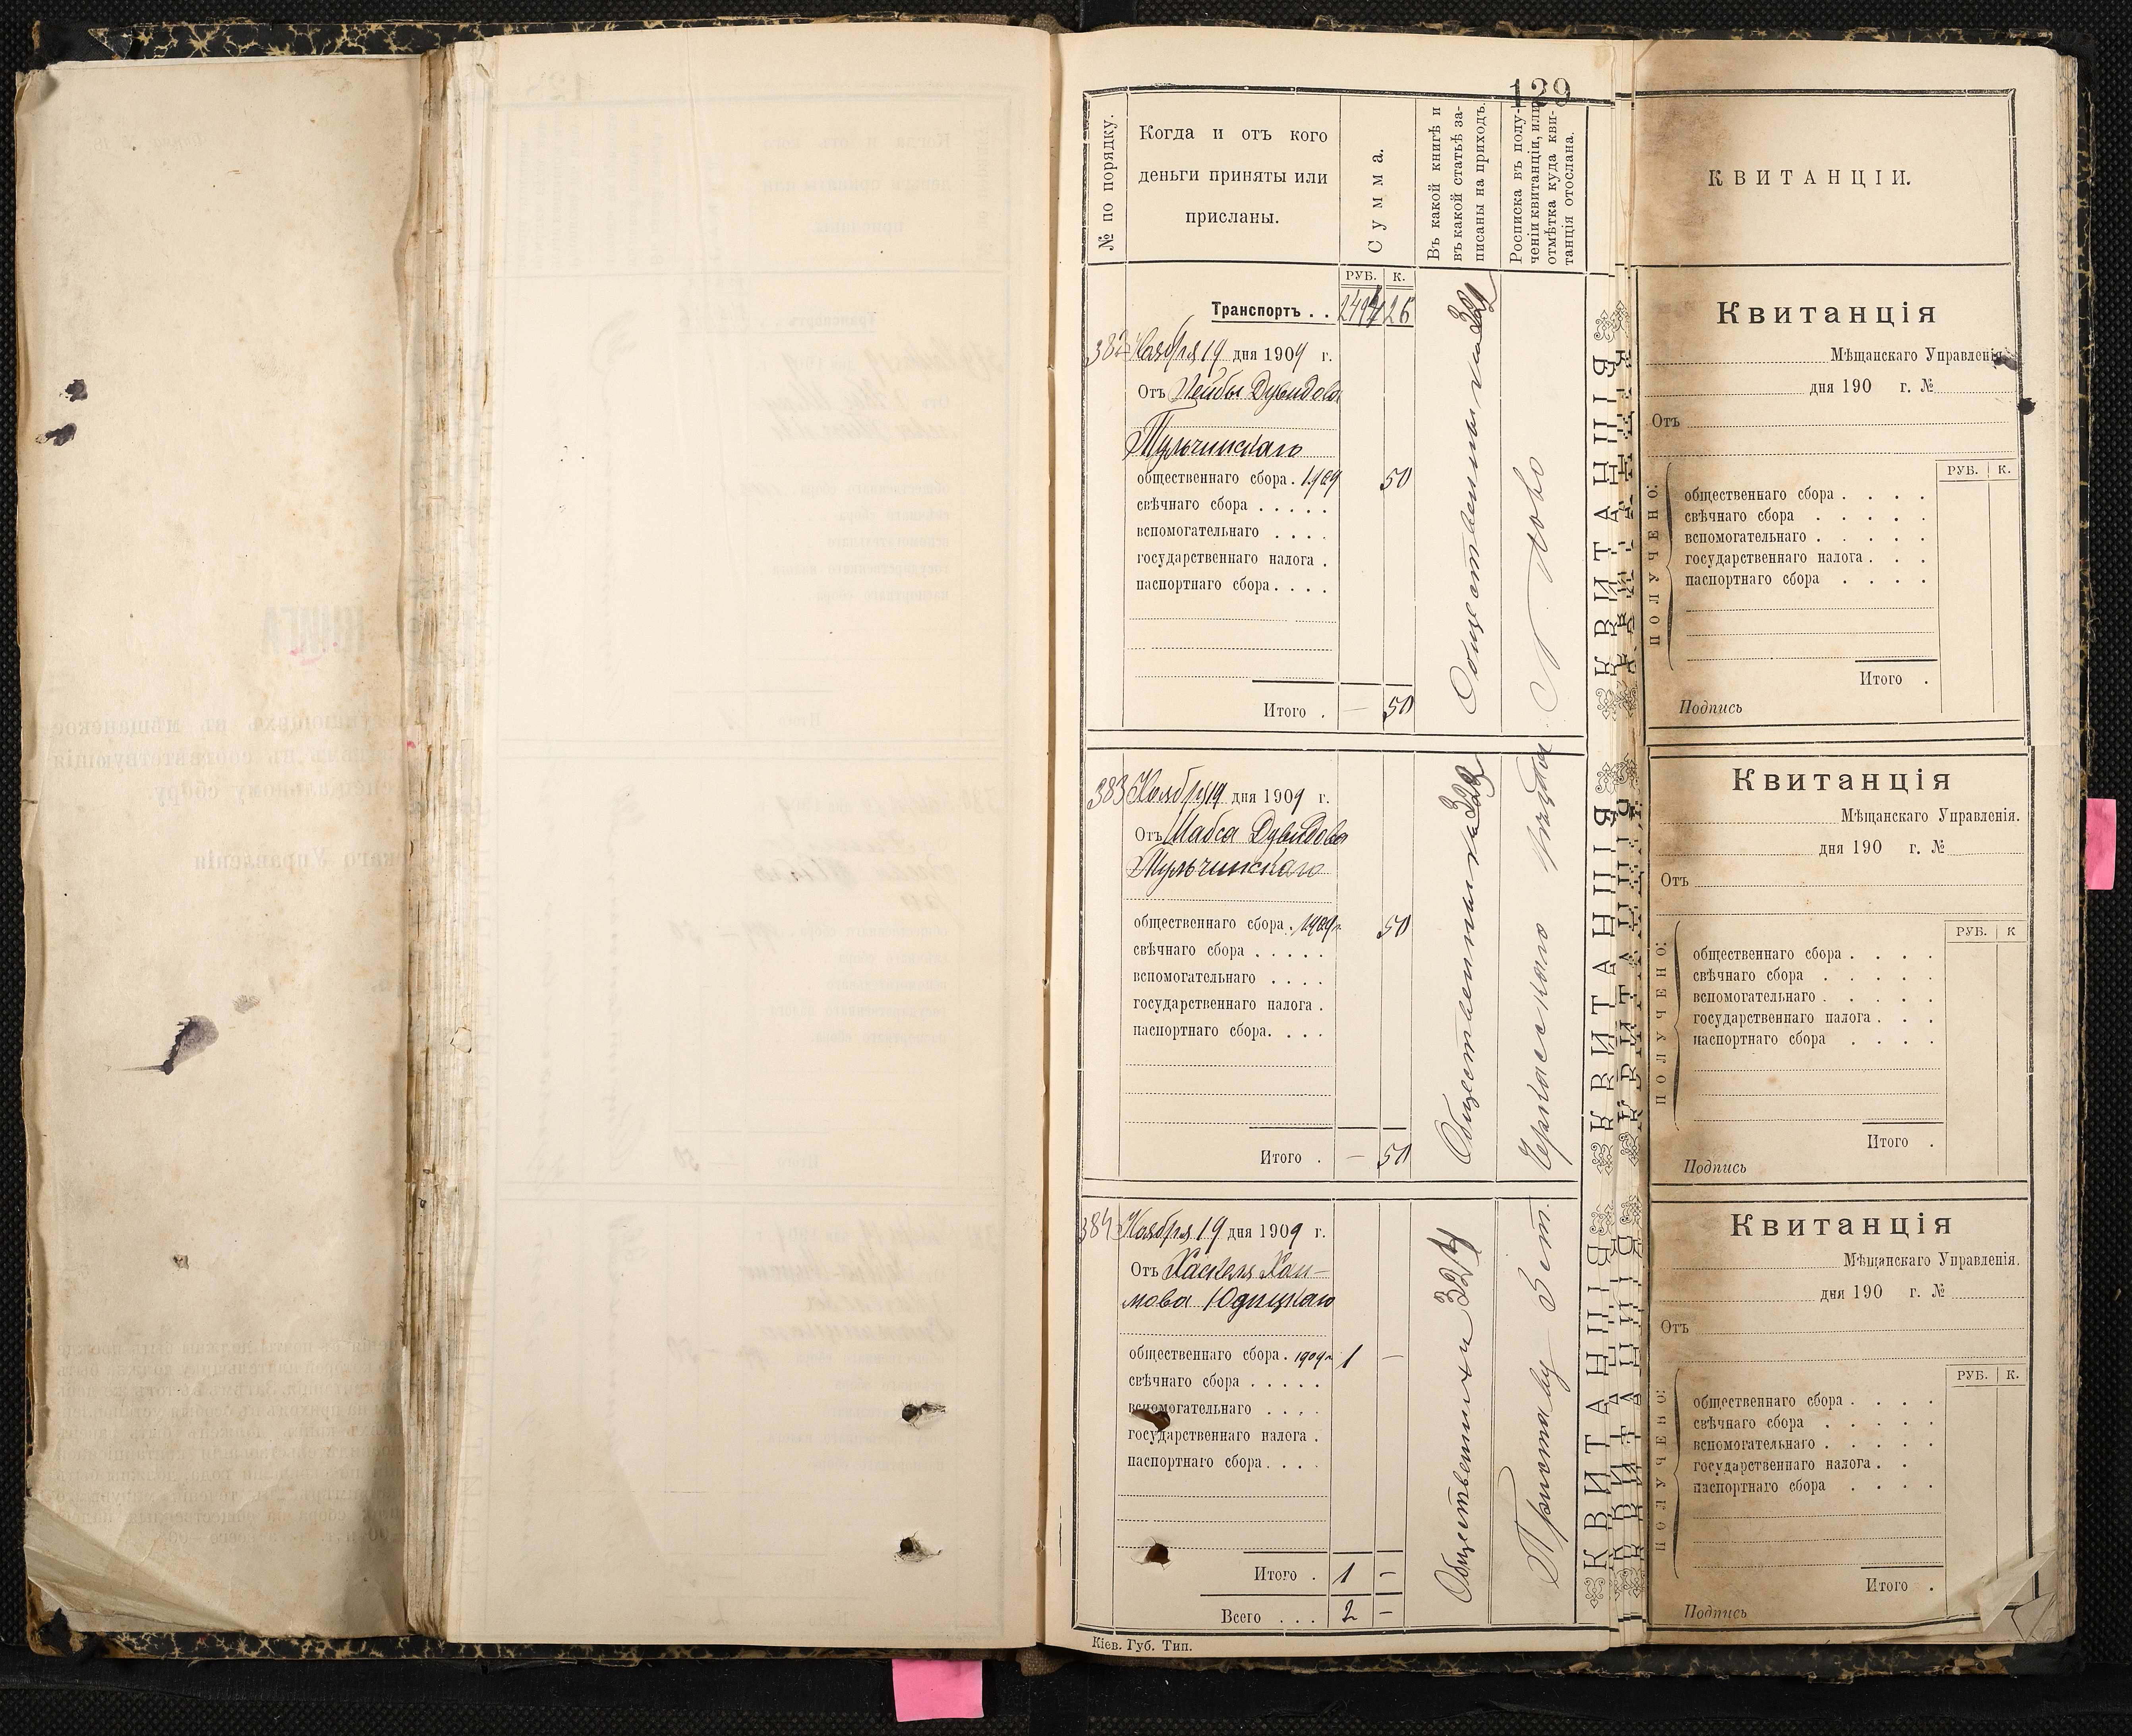 129
№ по порядку.
Когда и отъ кого
деньги приняты или
присланы.
Сумма.
Въ какой книгѣ и
въ какой статьѣ за-
писаны на приходъ.
Росписка въ полу-
ченіи квитанціи, или
отмѣтка куда кви-
танція отослана.
РУБ. К.
Транспортъ . . 26
382 Ноября 19 дня 1909 г.
Отъ Лейбы Дувидова
Тульчинскаго
общественнаго сбора . 1909 50
свѣчнаго сбора . . . . .
вспомогательнаго . . . .
государственнаго налога .
паспортнаго сбора . . . .
Итого . — 50
Общественныхъ
383 Ноября 19 дня 1909 г.
Отъ Шабса Дувидова
Тульчинскаго
общественнаго сбора . 1909 г. 50
свѣчнаго сбора . . . . .
вспомогательнаго . . . .
государственнаго налога .
паспортнаго сбора . . . .
Итого . — 50
Общественныхъ
Черкасскаго уѣзда
384 Ноября 19 дня 1909 г.
Отъ Хаскеля Хаи-
мова Юдицкаго
общественнаго сбора . 1909 г. 1 —
свѣчнаго сбора . . . . .
вспомогательнаго . . . .
государственнаго налога .
паспортнаго сбора . . . .
Итого . 1 —
Всего . . . 2 —
Общественныхъ 324
Приставу 3 ст.
Кіев. Губ. Тип.
КВИТАНЦІЯ
КВИТАНЦІЯ
КВИТАНЦІЯ
КВИТАНЦІИ.
Квитанція
Мѣщанскаго Управленія
дня 190 г. №
Отъ
РУБ. К.
ПОЛУЧЕНО:
общественнаго сбора . . . .
свѣчнаго сбора . . . . .
вспомогательнаго . . . . .
государственнаго налога . . .
паспортнаго сбора . . . .
Итого .
Подпись
Квитанція
Мѣщанскаго Управленія.
дня 190 г. №
Отъ
РУБ. К
ПОЛУЧЕНО:
общественнаго сбора . . . .
свѣчнаго сбора . . . . .
вспомогательнаго . . . . .
государственнаго налога . . .
паспортнаго сбора . . . .
Итого .
Подпись
Квитанція
Мѣщанскаго Управленія.
дня 190 г. №
Отъ
РУБ. К.
ПОЛУЧЕНО:
общественнаго сбора . . . .
свѣчнаго сбора . . . . .
вспомогательнаго . . . . .
государственнаго налога . .
паспортнаго сбора . . . .
Итого .
Подпись